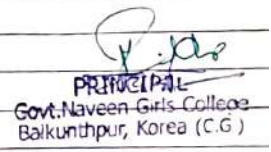 PRINCIPAL
Govt.Naveen Girls College
Baikunthpur, Korea (C.G.)